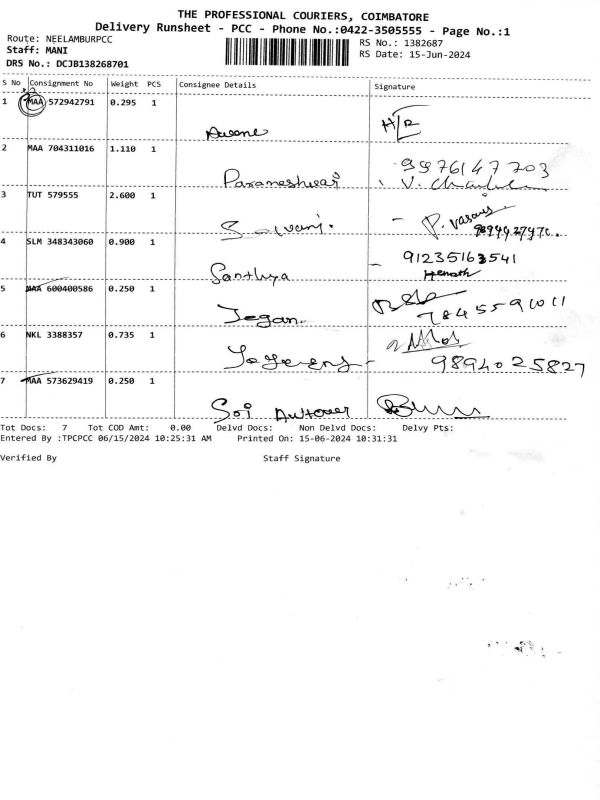 THE PROFESSIONAL COURIERS, COIMBATORE
Delivery Runsheet - PCC - Phone No.:0422-3505555 - Page No.:1
Route: NEELAMBURPCC RS No.: 1382687
Staff: MANI RS Date: 15-Jun-2024
DRS No.: DCJB138268701
S No Consignment No Weight PCS Consignee Details Signature
1 MAA 572942791 0.295 1
H/R
2 MAA 704311016 1.110 1
Parameshwari 9976147703
3 TUT 579555 2.600 1
4 SLM 348343060 0.900 1
Santhya 91235163541
5 MAA 600400586 0.250 1
Jegan 7845591011
6 NKL 3388357 0.735 1
9894025827
7 MAA 573629419 0.250 1
Sri
Tot Docs: 7 Tot COD Amt: 0.00 Delvd Docs: Non Delvd Docs: Delvy Pts:
Entered By :TPCPCC 06/15/2024 10:25:31 AM Printed On: 15-06-2024 10:31:31
Verified By Staff Signature